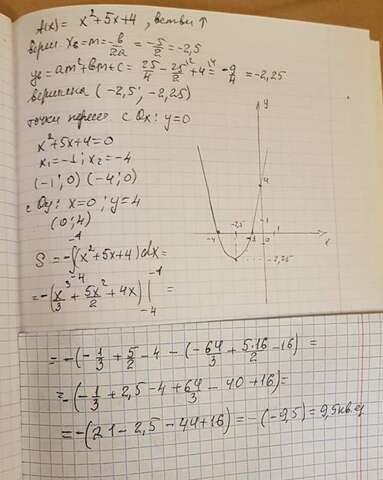 f(x) = x²+5x+4, ветви ↑
верш x₀ = m = -b/2a = -5/2 = -2,5
y₀ = am²+bm+c = 25/4 - 25/2 + 4 = -9/4 = -2,25
вершина (-2,5; -2,25)
точки перес с Ox: y=0
x²+5x+4=0
x₁=-1; x₂=-4
(-1; 0) (-4; 0)
с Oy: x=0; y=4
(0; 4)
S = -∫₋₄⁻¹(x²+5x+4)dx =
= -(x³/3 + 5x²/2 + 4x) |₋₄⁻¹ =
y
4
1
-4
-2,5
-1
0
1
x
-2,25
= -(-1/3 + 5/2 - 4 - (-64/3 + 5·16/2 - 16) =
= -(-1/3 + 2,5 - 4 + 64/3 - 40 + 16) =
= -(21 - 2,5 - 44 + 16) = -(-9,5) = 9,5 кв.ед